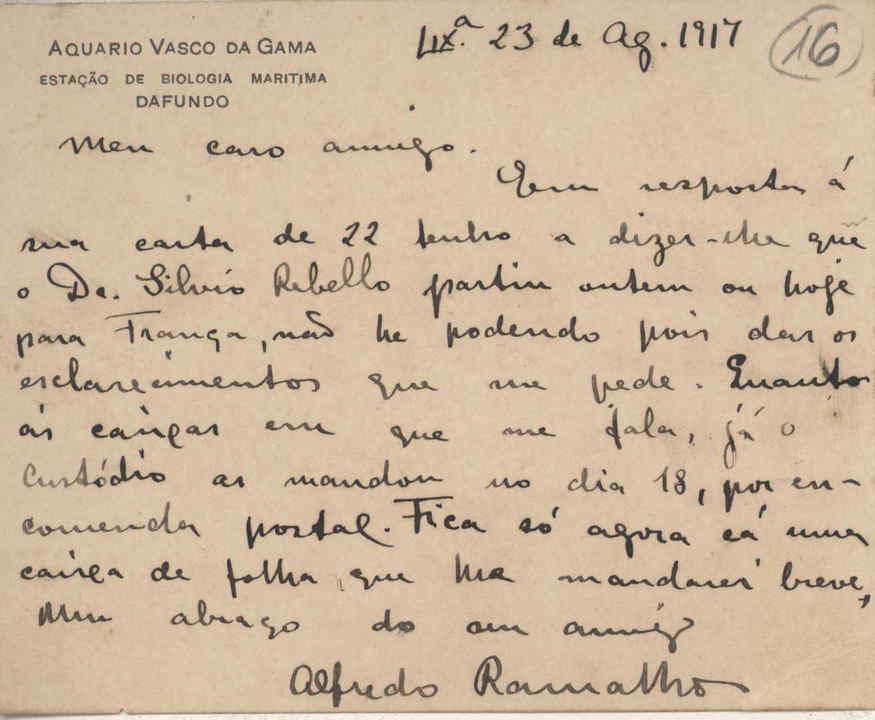 AQUARIO VASCO DA GAMA
ESTAÇÃO DE BIOLOGIA MARITIMA
DAFUNDO
Lxª. 23 de Ag. 1917
16
Meu caro amigo.
Em resposta á
sua carta de 22 tenho a dizer-lhe que
o Dr. Silvio Rebello partiu ontem ou hoje
para França, não lhe podendo pois dar os
esclarecimentos que me pede. Quanto
ás caixas em que me fala, já o
Custódio as mandou no dia 18, por en-
comenda postal. Fica só agora cá uma
caixa de folha, que lhe mandarei breve,
Um abraço do seu amigo
Alfredo Ramalho